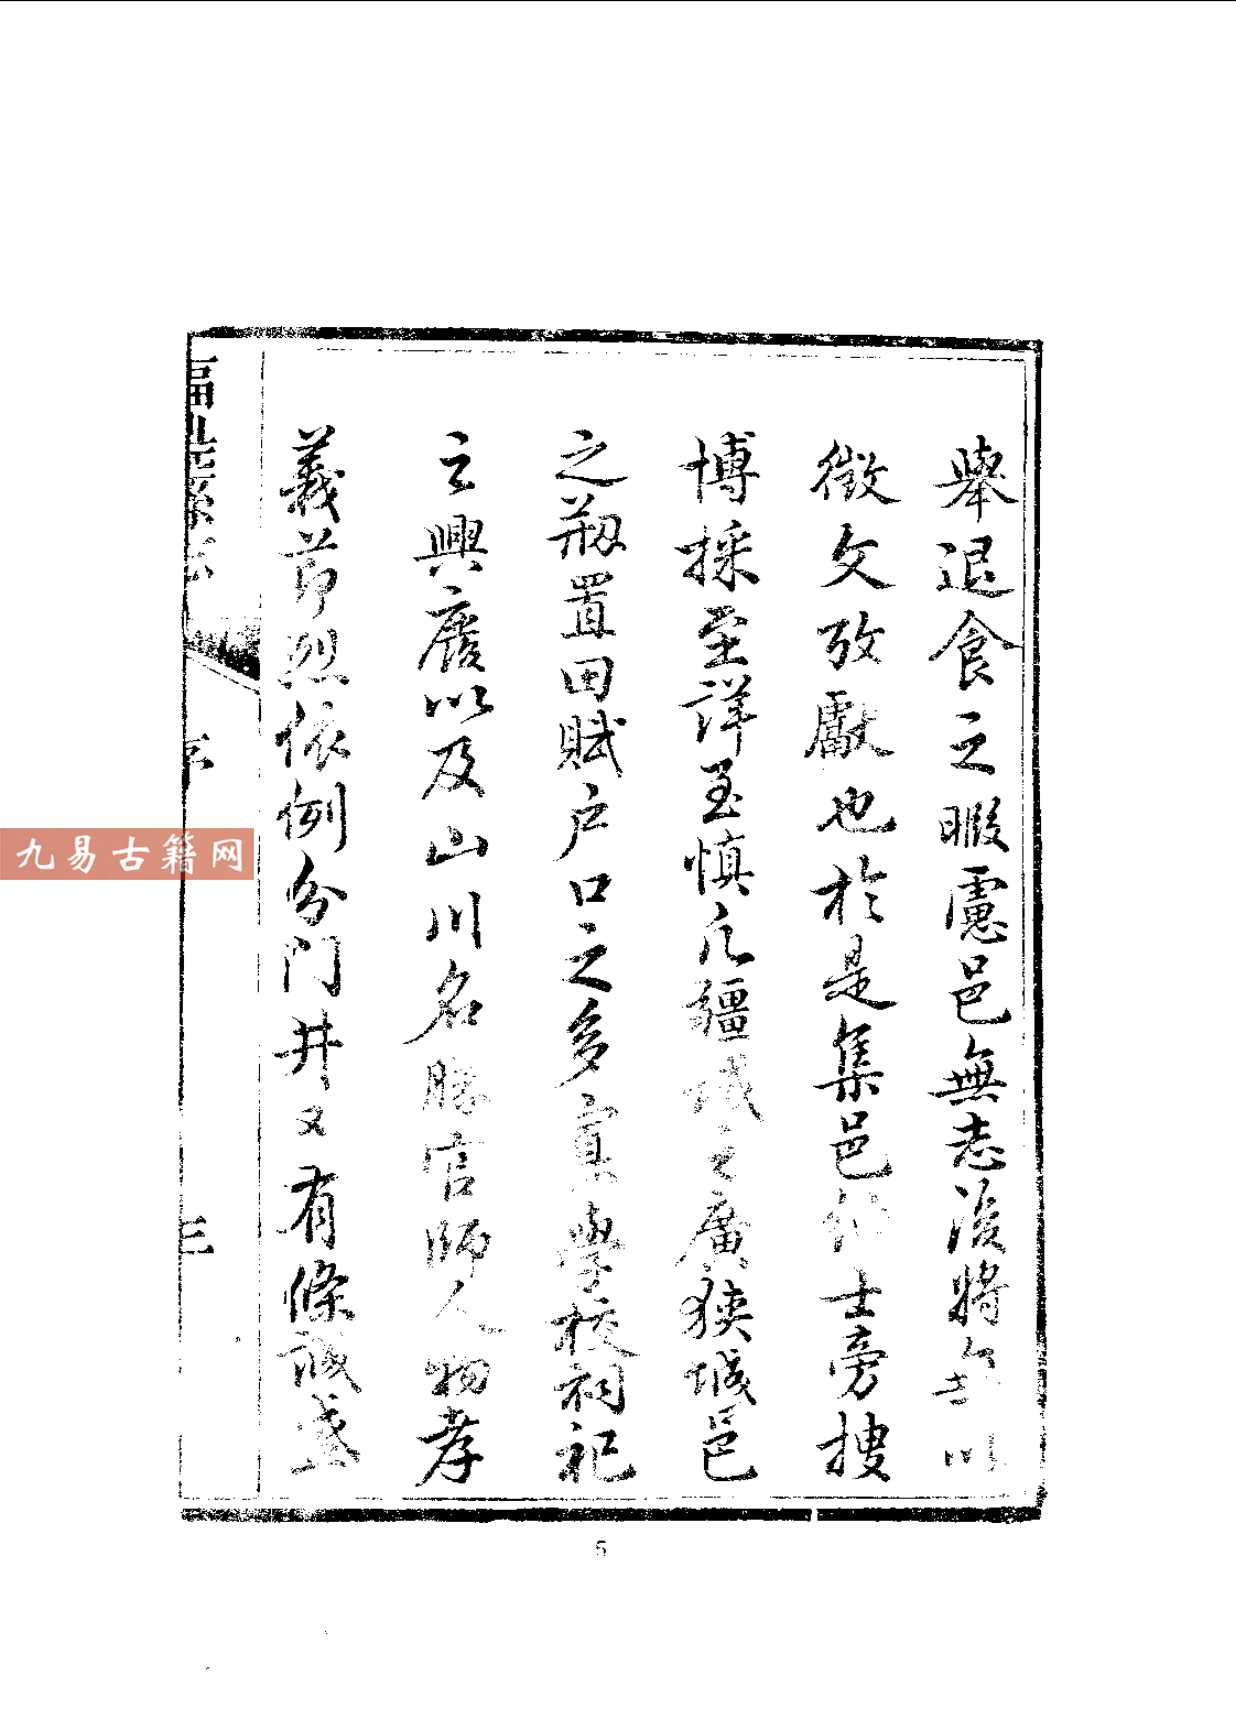 舉退食之暇慮邑無志後將無以
徵文攷獻也於是集邑紳士旁搜
博採至詳至慎凡疆域之廣狹城邑
之剏置田賦户口之多寡學校祠祀
之興廢以及山川名勝官師人物孝
義節烈依例分門井又有條誠盛
縣志
序
三
九易古籍网
5